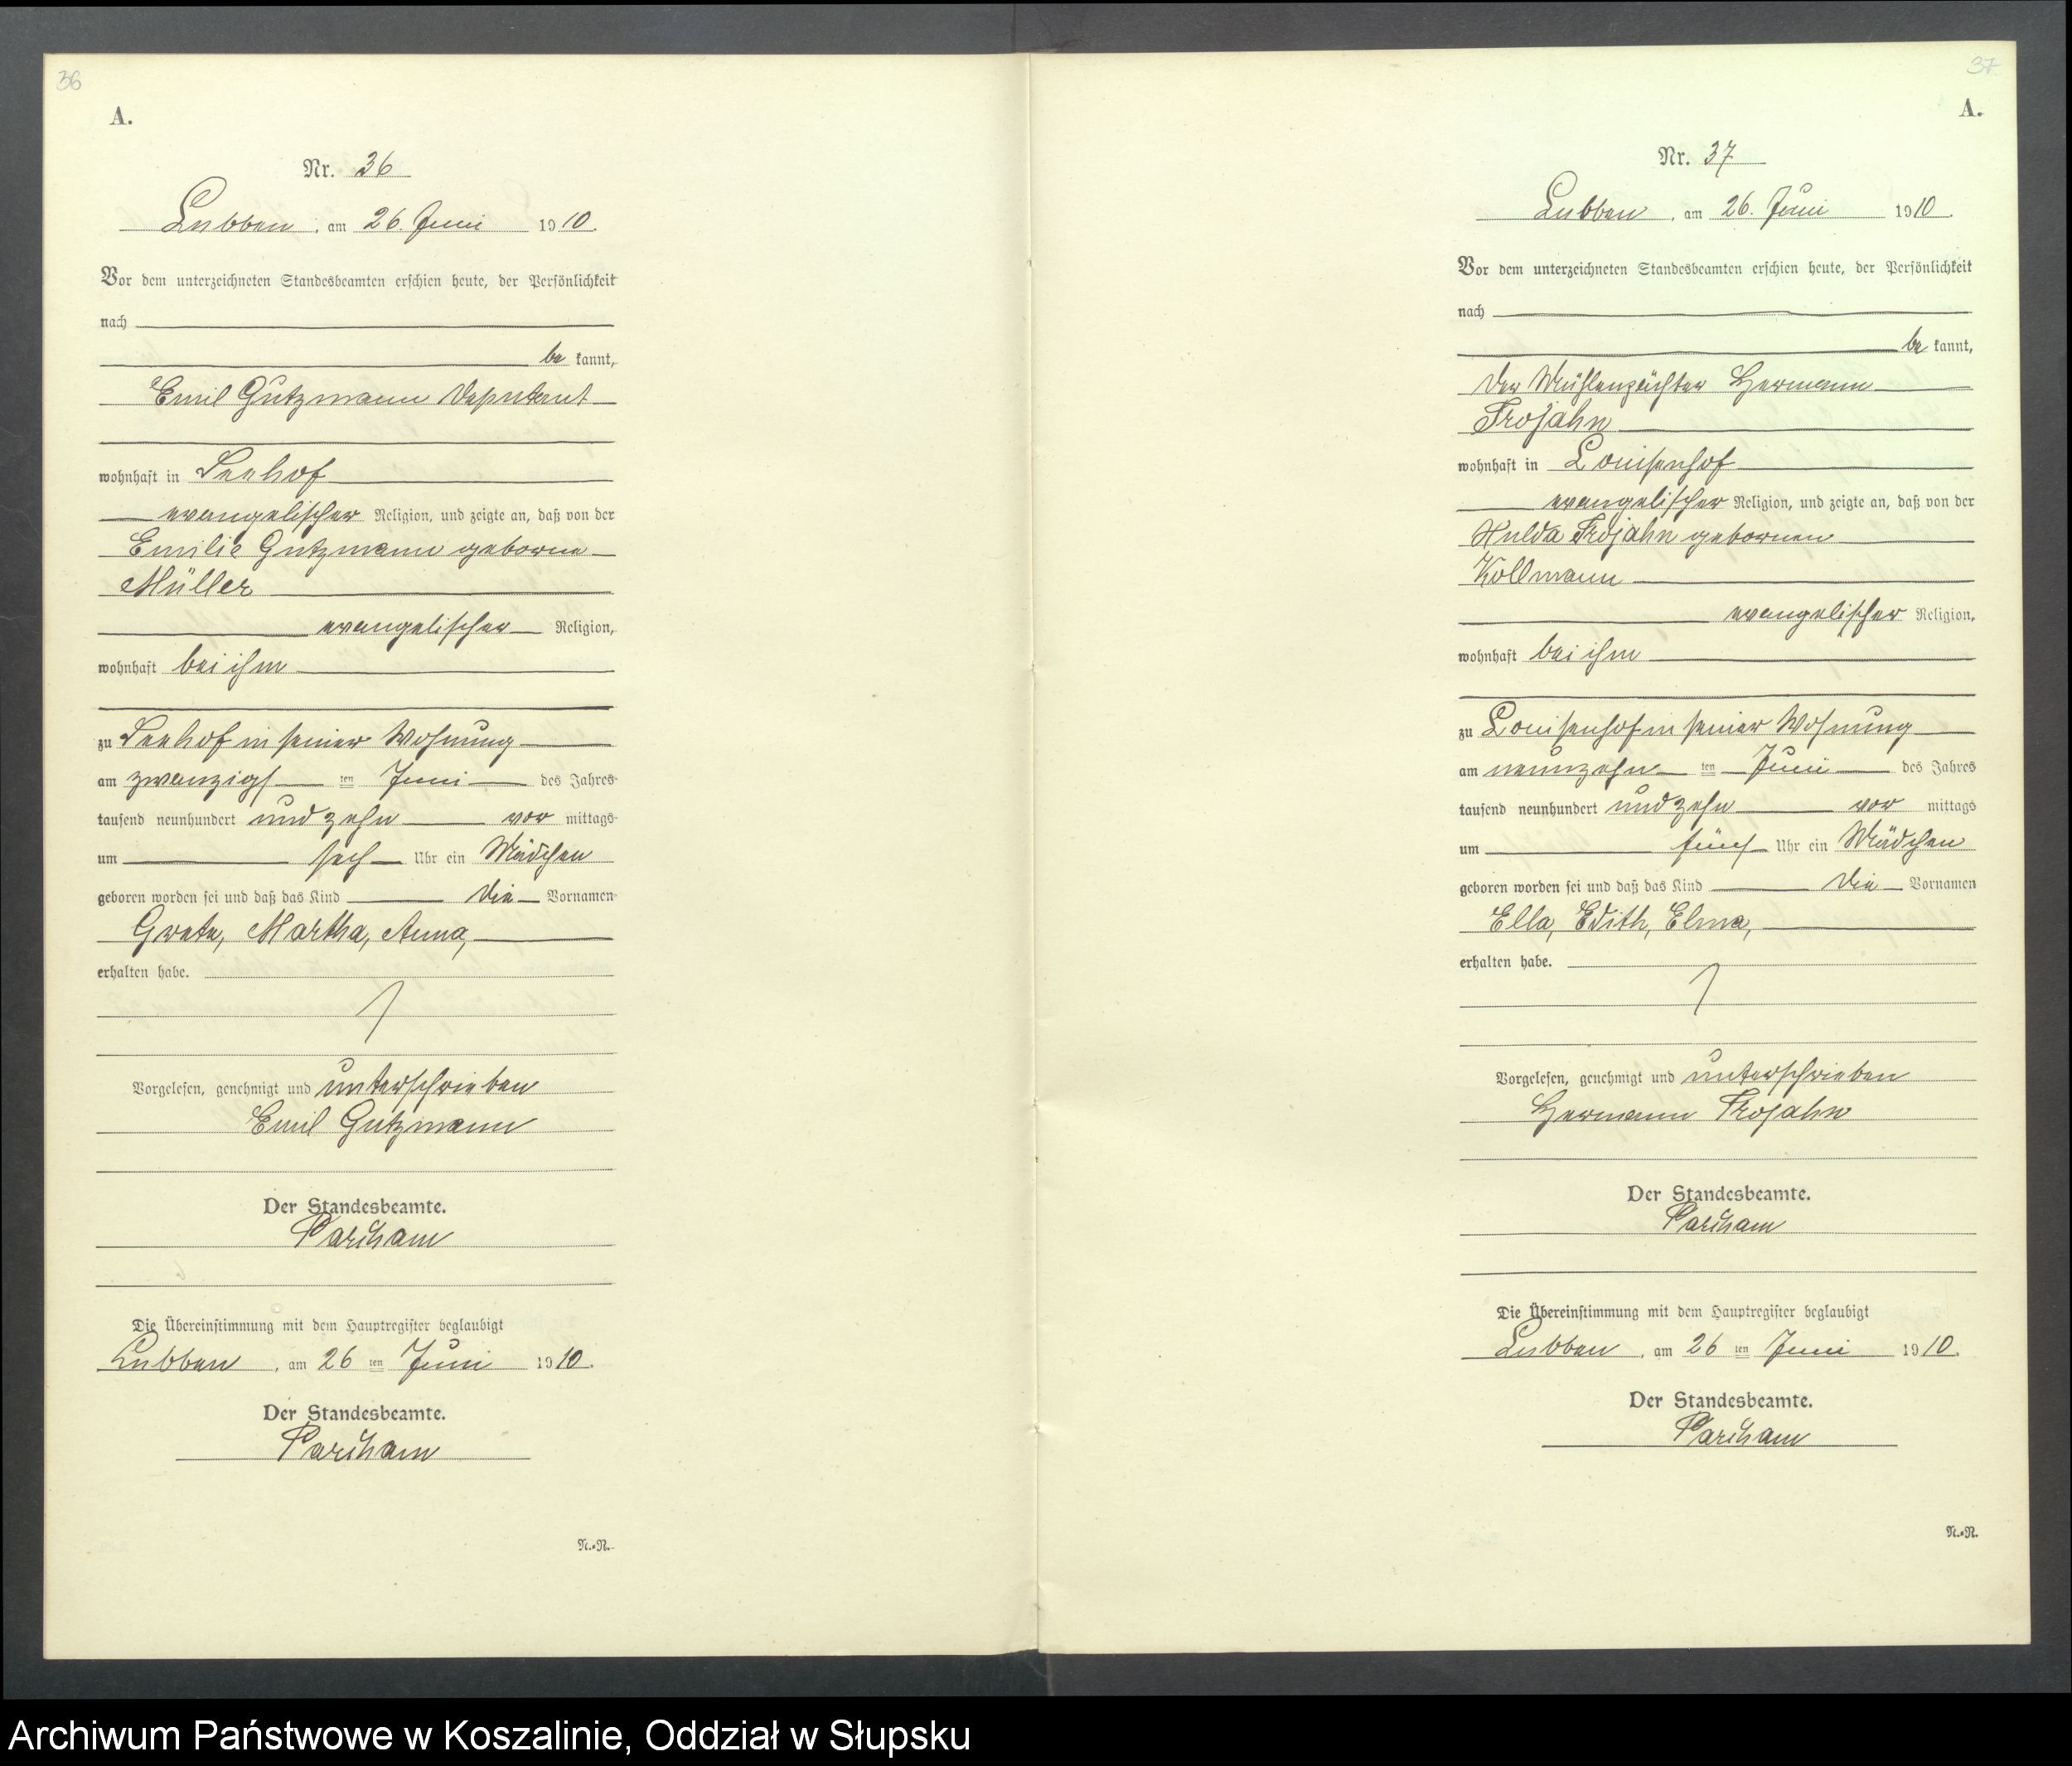 36
A.
Nr. 36
Lubben, am 26. Juni 1910.
Vor dem unterzeichneten Standesbeamten erschien heute, der Persönlichkeit
nach
be kannt,
Emil Gutzmann Deputant
wohnhaft in Seehof
evangelischer Religion, und zeigte an, daß von der
Emilie Gutzmann geborne
Müller
evangelischer Religion,
wohnhaft bei ihm
zu Seehof in seiner Wohnung
am zwanzigs ten Juni des Jahres
tausend neunhundert und zehn vor mittags
um sechs Uhr ein Mädchen
geboren worden sei und daß das Kind die Vornamen
Grete, Martha, Anna,
erhalten habe.
Vorgelesen, genehmigt und unterschrieben
Emil Gutzmann
Der Standesbeamte.
Parcham
Die Übereinstimmung mit dem Hauptregister beglaubigt
Lubben, am 26 ten Juni 1910.
Der Standesbeamte.
Parcham
N.=R.
37
A.
Nr. 37
Lubben, am 26. Juni 1910.
Vor dem unterzeichneten Standesbeamten erschien heute, der Persönlichkeit
nach
be kannt,
Der Mühlenpächter Hermann
Trojahn
wohnhaft in Louisenhof
evangelischer Religion, und zeigte an, daß von der
Hulda Trojahn gebornen
Kollmann
evangelischer Religion,
wohnhaft bei ihm
zu Louisenhof in seiner Wohnung
am neunzehn ten Juni des Jahres
tausend neunhundert und zehn vor mittags
um fünf Uhr ein Mädchen
geboren worden sei und daß das Kind die Vornamen
Ella, Edith, Elma,
erhalten habe.
Vorgelesen, genehmigt und unterschrieben
Hermann Trojahn
Der Standesbeamte.
Parcham
Die Übereinstimmung mit dem Hauptregister beglaubigt
Lubben, am 26 ten Juni 1910.
Der Standesbeamte.
Parcham
N.=R.
Archiwum Państwowe w Koszalinie, Oddział w Słupsku